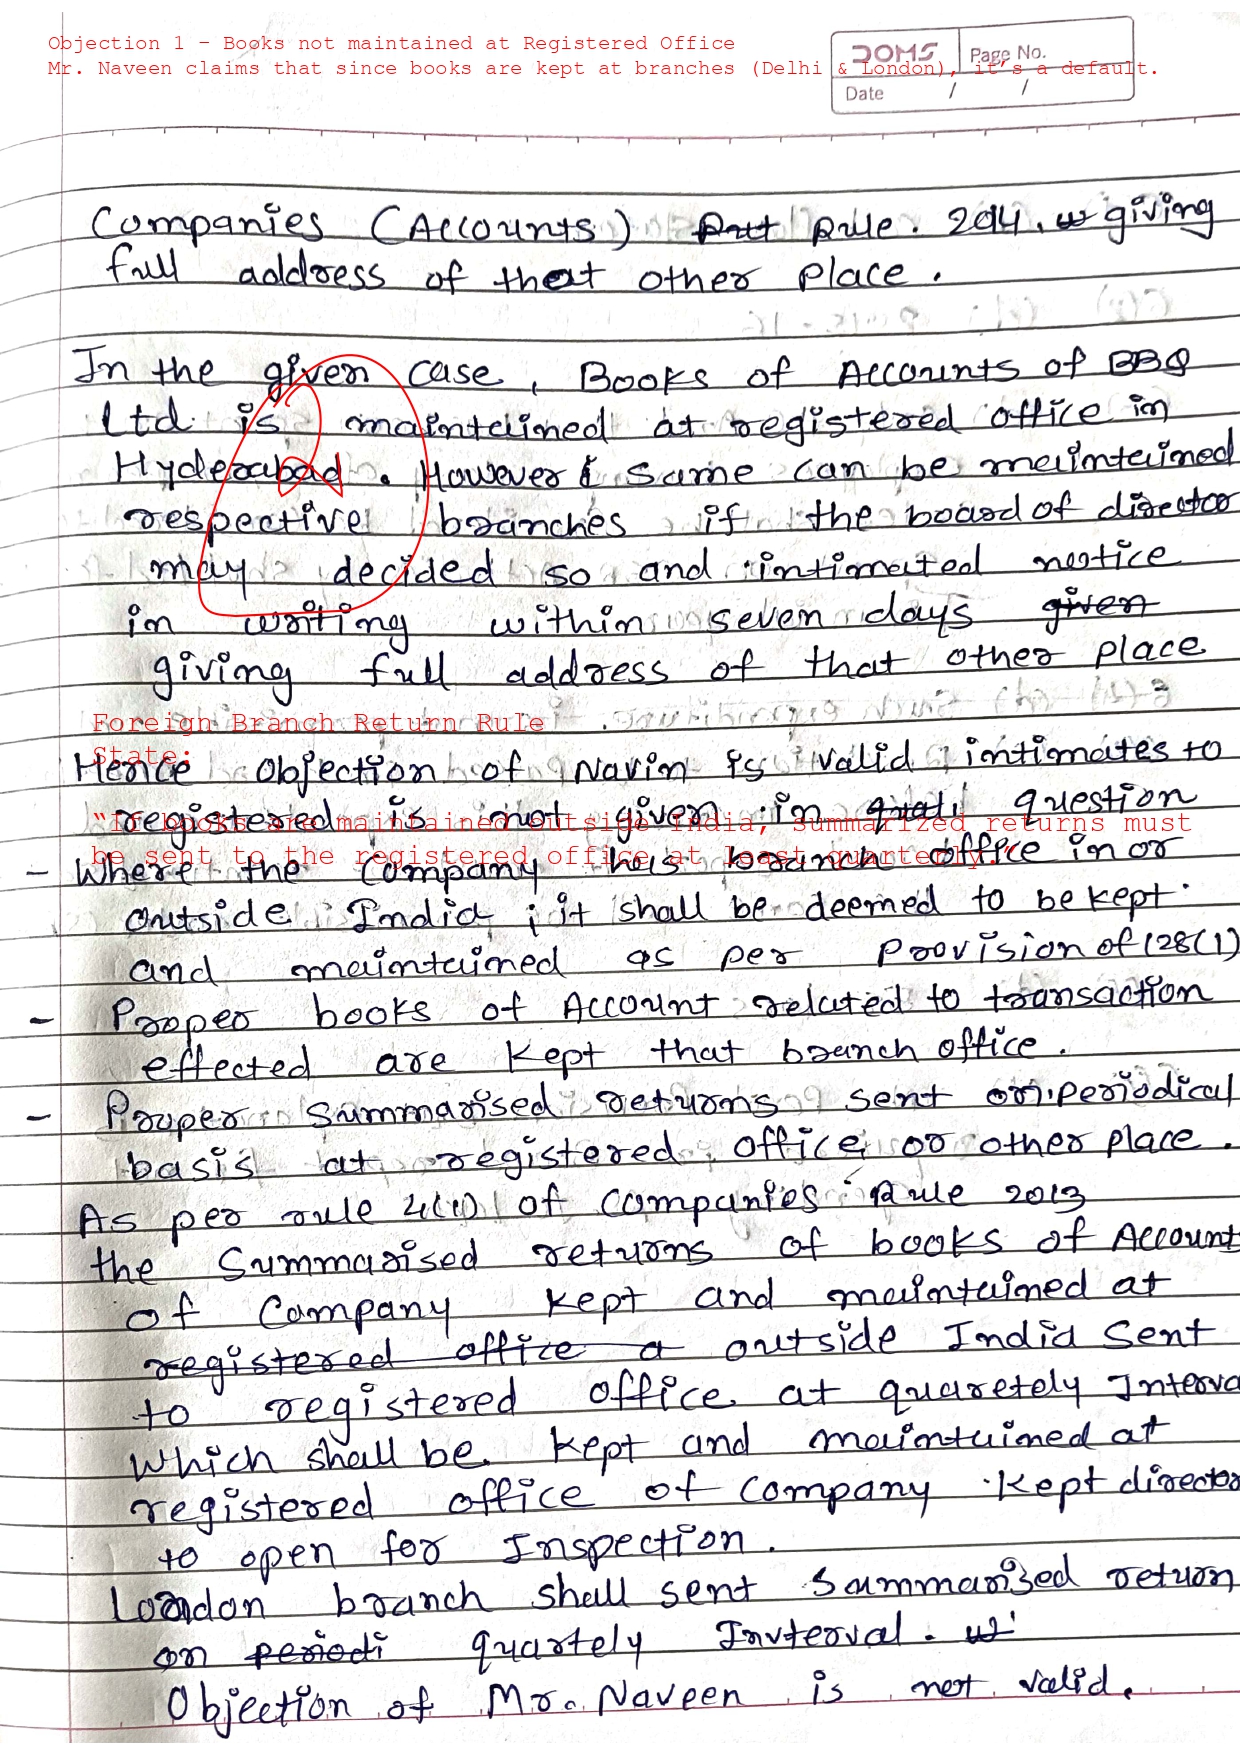 Objection 1 – Books not maintained at Registered Office
Mr. Naveen claims that since books are kept at branches (Delhi & London), it's a default.
DOMS Page No.
Date / /
Companies (Accounts) Rule. 2014. giving
full address of that other place.
In the given case, Books of Accounts of BBQ
Ltd. is maintained at registered office in
Hyderabad. However same can be maintained
respective branches if the board of director
may decided so and intimated notice
in writing within seven days given
giving full address of that other place
Foreign Branch Return Rule
State:
Hence objection of Navin is valid intimates to
"If books are maintained outside India, summarized returns must
registered is not given in question
be sent to the registered office at least quarterly."
- Where the company has branch office in or
outside India ; it shall be deemed to be kept
and maintained as per provision of 128(1)
- Proper books of Account related to transaction
effected are kept that branch office.
- Proper summarised returns sent on periodical
basis at registered office or other place.
As per rule 4(1) of companies Rule 2013
the Summarised returns of books of Account
of Company kept and maintained at
registered office a outside India Sent
to registered office at quaretely Interva
which shall be kept and maintained at
registered office of company kept director
to open for Inspection.
London branch shall sent Summarized return
on periodi quartely Invterval.
Objection of Mr. Naveen is not valid.